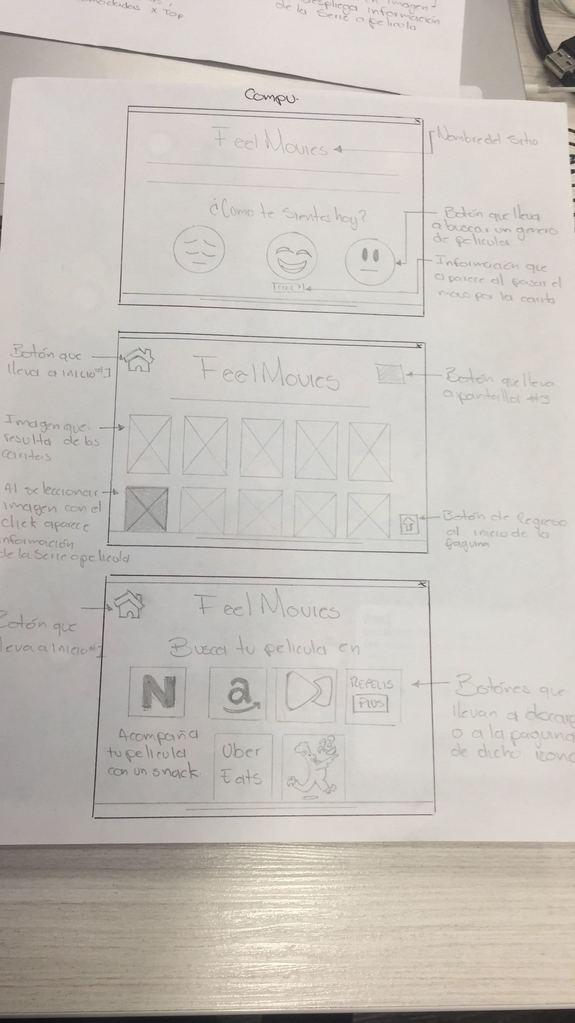 x Top
despliega información
de la Serie o película
Compu.
Feel Movies
Nombre del Sitio
¿Como te sientes hoy?
Botón que lleva
a buscar un genero
de película
Información que
aparece al pasar el
por la carita
Botón que
lleva a inicio #1
Feel Movies
Botón que lleva
a pantalla #3
Imagen que
resulta de las
caritas
Al seleccionar
imagen con el
click aparece
información
de la Serie o película
Botón de Regreso
al inicio de la
pagina
Feel Movies
Botón que
lleva a Inicio #1
Busca tu película en
N
a
REPELIS
PLUS
Botones que
llevan a
o a la pagina
de dicho icono
Acompaña
tu película
con un snack
Uber
Eats